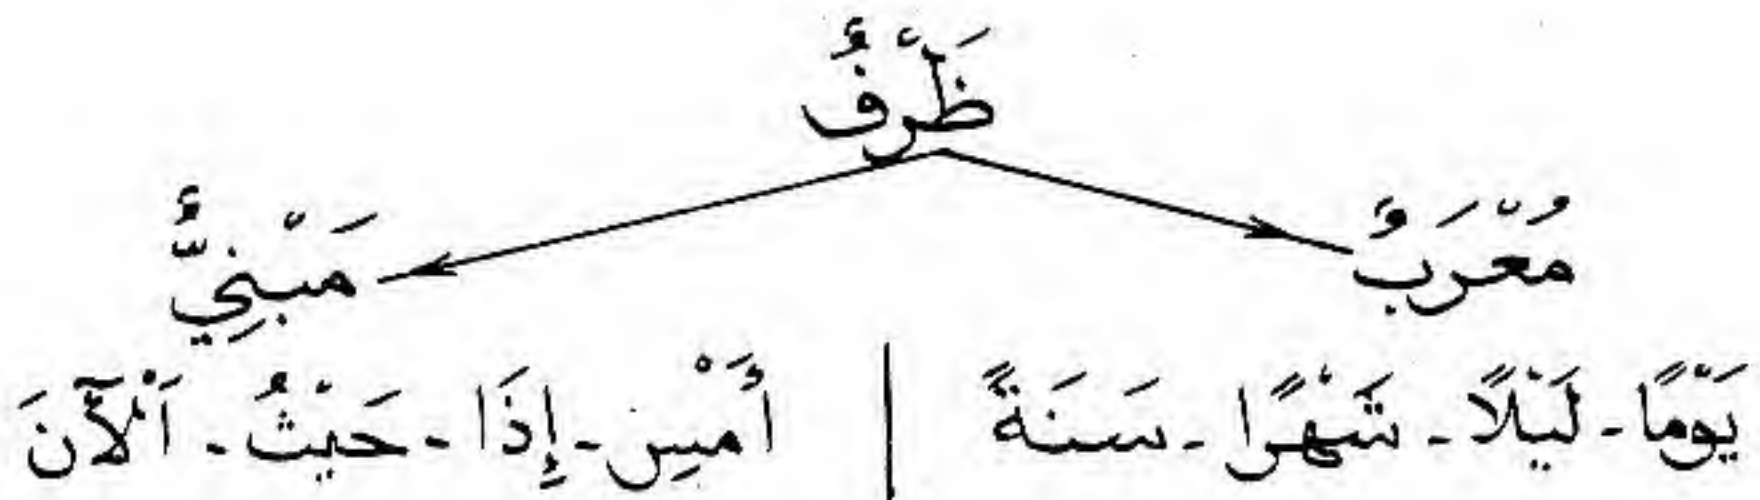 ظَرْفٌ
مُعْرَبٌ مَبْنِيٌّ
يَوْمًا - لَيْلًا - شَهْرًا - سَنَةً | أَمْسِ - إِذَا - حَيْثُ - اَلْآنَ